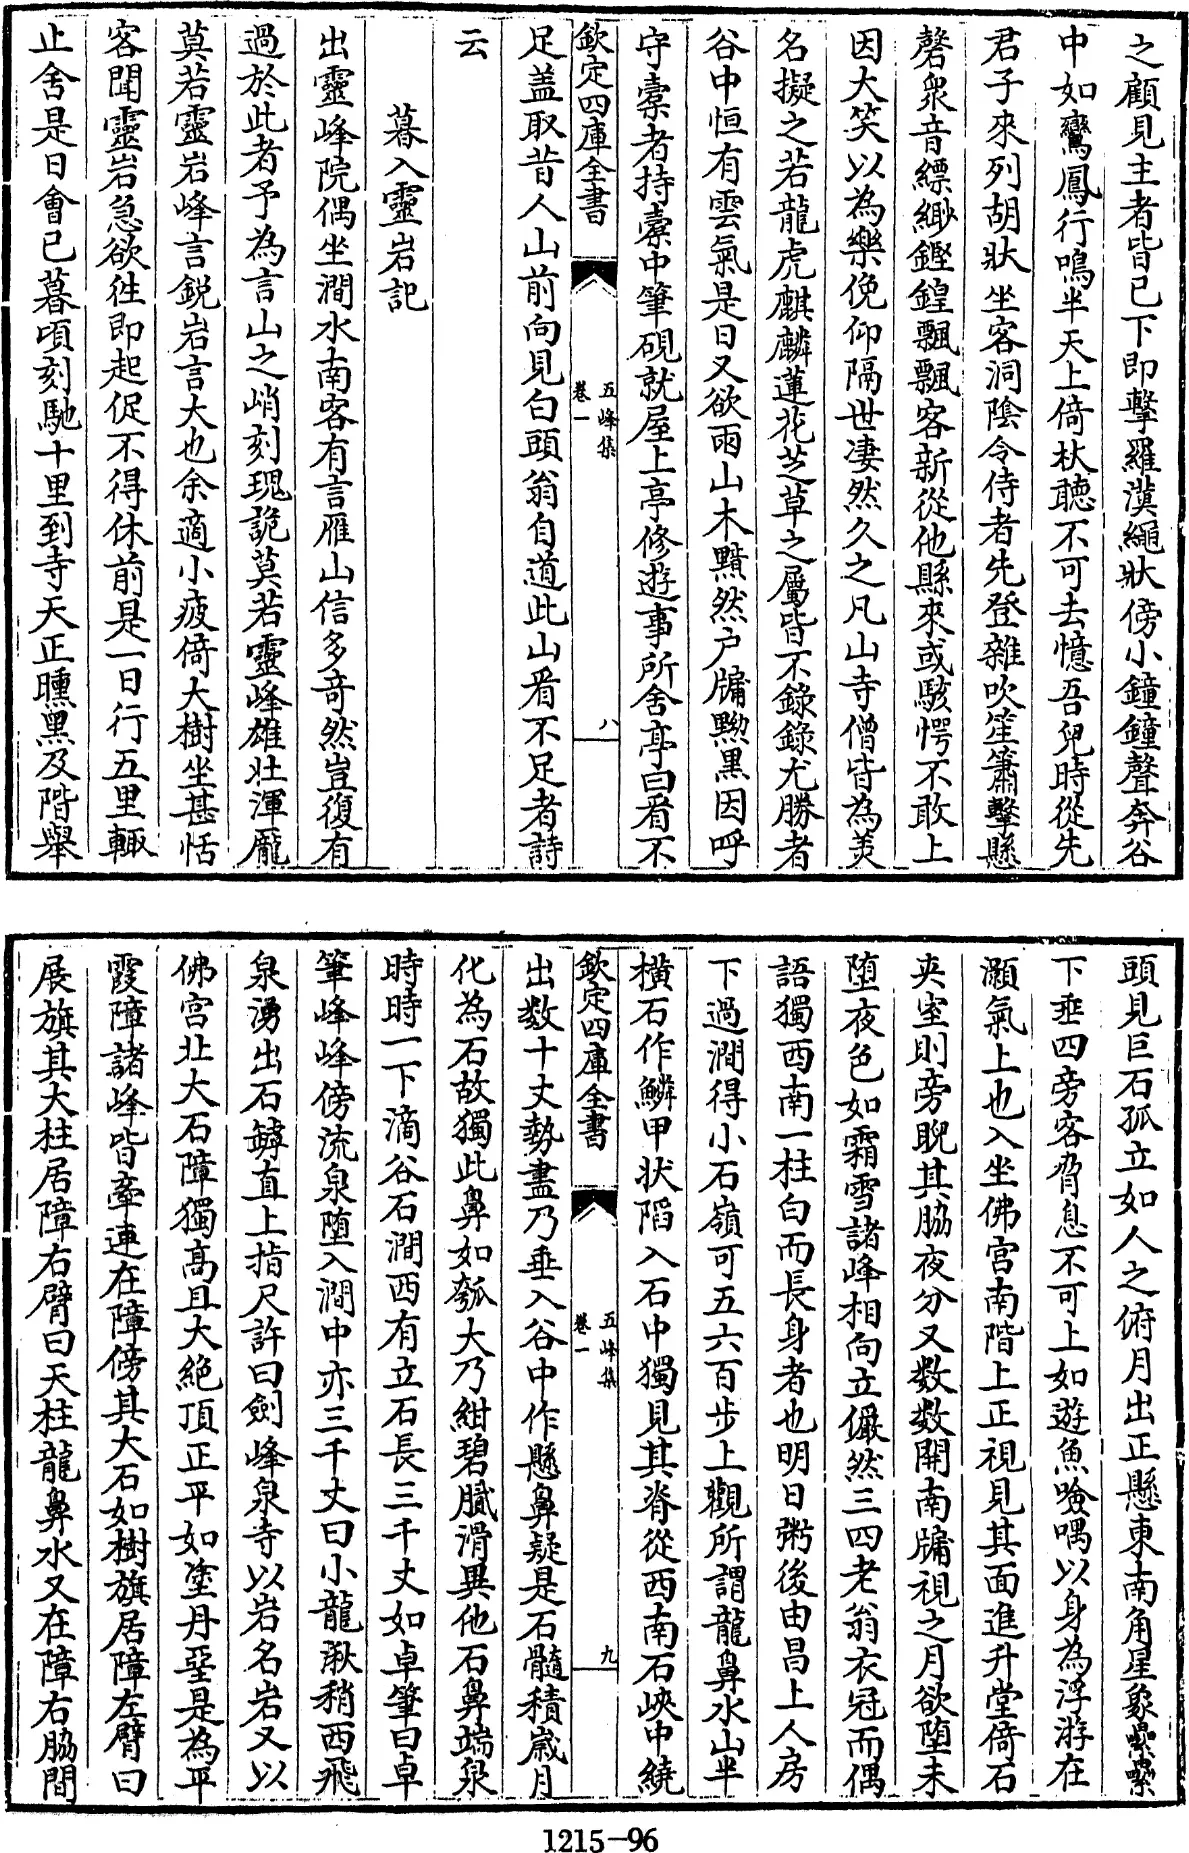 之顧見主者皆已下即擊羅漢繩牀傍小鐘鐘聲奔谷
中如鸞鳳行鳴半天上倚杖聽不可去憶吾兒時從先
君子來列胡牀坐客洞陰令侍者先登雜吹笙簫擊縣
磬衆音縹緲鏗鍠飄飄客新從他縣來或駭愕不敢上
因大笑以為樂俛仰隔世凄然久之凡山寺僧皆為美
名擬之若龍虎麒麟蓮花芝草之屬皆不錄錄尤勝者
谷中恒有雲氣是日又欲雨山木黯然户牖黝黒因呼
守橐者持橐中筆硯就屋上亭修遊事所舍亭曰看不
欽定四庫全書
五峰集
卷一
八
足盖取昔人山前向見白頭翁自道此山看不足者詩
云
暮入靈岩記
出靈峰院偶坐澗水南客有言雁山信多奇然豈復有
過於此者予為言山之峭刻瑰詭莫若靈峰雄壯渾龎
莫若靈岩峰言鋭岩言大也余適小疲倚大樹坐甚恬
客聞靈岩急欲徃即起促不得休前是一日行五里輙
止舍是日會已暮頃刻馳十里到寺天正曛黒及階舉
頭見巨石孤立如人之俯月出正懸東南角星象纍纍
下垂四旁客脅息不可上如遊魚噞喁以身為浮游在
灝氣上也入坐佛宮南階上正視見其面進升堂倚石
夾室則旁睨其脇夜分又數數開南牖視之月欲墮未
墮夜色如霜雪諸峰相向立儼然三四老翁衣冠而偶
語獨西南一柱白而長身者也明日粥後由昌上人房
下過澗得小石嶺可五六百步上觀所謂龍鼻水山半
橫石作鱗甲狀䧟入石中獨見其脊從西南石峽中繞
欽定四庫全書
五峰集
卷一
九
出數十丈勢盡乃垂入谷中作懸鼻疑是石髓積歲月
化為石故獨此鼻如瓠大乃紺碧膩滑異他石鼻端泉
時時一下滴谷石澗西有立石長三千丈如卓筆曰卓
筆峰峰傍流泉墮入澗中亦三千丈曰小龍湫稍西飛
泉湧出石罅直上指尺許曰劍峰泉寺以岩名岩又以
佛宮北大石障獨高且大絶頂正平如塗丹堊是為平
霞障諸峰皆牽連在障傍其大石如樹旗居障左臂曰
展旗其大柱居障右臂曰天柱龍鼻水又在障右脇間
1215-96